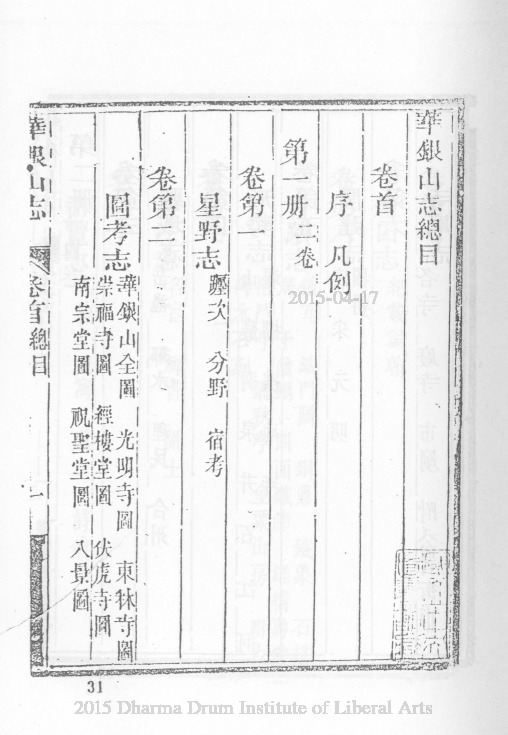 華銀山志總目
卷首
序 凡例
第一册 二卷
卷第一
星野志 躔次 分野 宿考
卷第二
圖考志 華銀山全圖 光明寺圖 東林寺圖
崇福寺圖 經樓堂圖 伏虎寺圖
南宗堂圖 祝聖堂圖 八景圖
華銀山志 卷首總目 一
2015-04-17
31
2015 Dharma Drum Institute of Liberal Arts